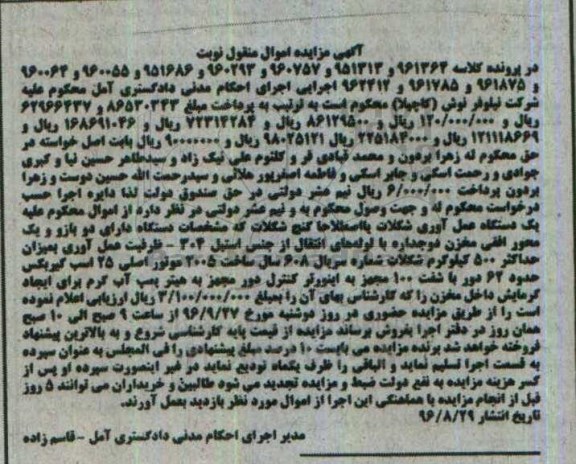 آگهی مزایده اموال منقول نوبت
در پرونده کلاسه ۹۶۱۳۶۴ و ۹۵۱۳۱۳ و ۹۶۰۷۵۷ و ۹۶۰۲۹۳ و ۹۵۱۶۸۶ و ۹۶۰۰۵۵ و ۹۶۰۰۶۴
و ۹۶۱۸۷۵ و ۹۶۱۷۸۵ و ۹۶۲۴۱۲ اجرایی اجرای احکام مدنی دادگستری آمل محکوم علیه
شرکت نیلوفر نوش (کاچیلا) محکوم است به ترتیب به پرداخت مبلغ ۸۶۵۳۰۳۴۳ و ۶۲۹۶۶۴۳۷
ریال و ۱۲۰/۰۰۰/۰۰۰ ریال و ۸۶۱۲۹۵۰۰ ریال و ۷۲۳۱۴۲۸۴ ریال و ۱۶۸۶۹۱۰۴۶ ریال و
۱۲۱۱۱۸۶۶۹ ریال و ۲۲۵۱۸۴۰۰۰ ریال ۹۸۰۲۵۱۲۱ ریال ۹۰۰۰۰۰۰۰ ریال بابت اصل خواسته در
حق محکوم له زهرا بردون و محمد قبادی فر و کلثوم علی نیک زاد و سیدطاهر حسین نیا و کبری
جوادی و رحمت اسکی و جابر اسکی و فاطمه اصغرپور هلالی و سیدرحمت الله حسین دوست و زهرا
بردون پرداخت ۶/۰۰۰/۰۰۰ ریال نیم عشر دولتی در حق صندوق دولت لذا دایره اجرا حسب
درخواست محکوم له و جهت وصول محکوم به و نیم عشر دولتی در نظر دارد از اموال محکوم علیه
یک دستگاه عمل آوری شکلات یااصطلاحا کنج شکلات که مشخصات دستگاه دارای دو بازو و یک
محور افقی مخزن دوجداره با لوله‌های انتقال از جنس استیل ۳۰۴ - ظرفیت عمل آوری بمیزان
حداکثر ۵۰۰ کیلوگرم شکلات شماره سریال ۶۰۸ سال ساخت ۲۰۰۵ موتور اصلی ۲۵ اسب گیربکس
حدود ۶۲ دور با شفت ۱۰۰ مجهز به اینورتر کنترل دور مجهز به هیتر پمپ آب گرم برای ایجاد
گرمایش داخل مخزن را که کارشناس بهای آن را بمبلغ ۳/۱۰۰/۰۰۰/۰۰۰ ریال ارزیابی اعلام نموده
است را از طریق مزایده حضوری در روز دوشنبه مورخ ۹۶/۹/۲۷ از ساعت ۹ صبح الی ۱۰ صبح
همان روز در دفتر اجرا بفروش برساند مزایده از قیمت پایه کارشناسی شروع و به بالاترین پیشنهاد
فروخته خواهد شد برنده مزایده می بایست ۱۰ درصد مبلغ پیشنهادی را فی المجلس به عنوان سپرده
به قسمت اجرا تسلیم نماید و الباقی را ظرف یکماه تودیع نماید در غیر اینصورت سپرده او پس از
کسر هزینه مزایده به نفع دولت ضبط و مزایده تجدید می شود طالبین و خریداران می توانند ۵ روز
قبل از انجام مزایده با هماهنگی این اجرا از اموال مورد نظر بازدید بعمل آورند.
تاریخ انتشار ۹۶/۸/۲۹
مدیر اجرای احکام مدنی دادگستری آمل - قاسم زاده